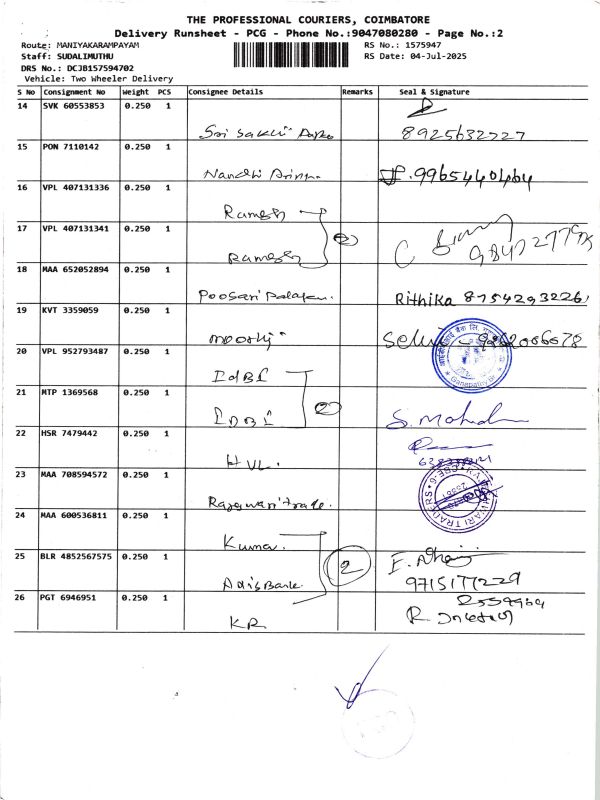 THE PROFESSIONAL COURIERS, COIMBATORE
Delivery Runsheet - PCG - Phone No.:9047080280 - Page No.:2
Route: MANIYAKARAMPAYAM
RS No.: 1575947
Staff: SUDALIMUTHU
RS Date: 04-Jul-2025
DRS No.: DCJB157594702
Vehicle: Two Wheeler Delivery
S No Consignment No Weight PCS Consignee Details Remarks Seal & Signature
14 SVK 60553853 0.250 1
Sri Sakthi 8925632727
15 PON 7110142 0.250 1
Nandhi
16 VPL 407131336 0.250 1
Ramesh
17 VPL 407131341 0.250 1
Ramesh 2
18 MAA 652052894 0.250 1
Poosari Palayam Rithika 8754293226
19 KVT 3359059 0.250 1
moorthi Selvi
20 VPL 952793487 0.250 1
IDBI
21 MTP 1369568 0.250 1
IDBI 2 S. Mohan
22 HSR 7479442 0.250 1
HVL.
23 MAA 708594572 0.250 1
Rajeswari trade.
24 MAA 600536811 0.250 1
Kumar.
25 BLR 4852567575 0.250 1
Axis Bank. 2 9715177229
26 PGT 6946951 0.250 1
KR R.